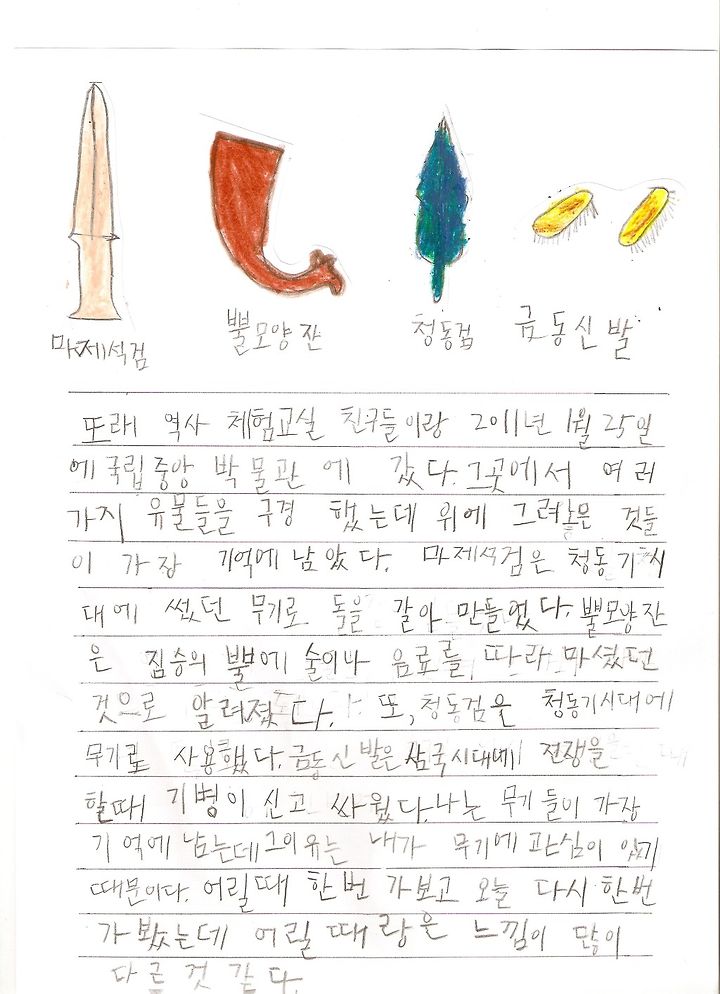 마제석검
뿔모양잔
청동검
금동신발
또래 역사 체험교실 친구들이랑 2011년 1월 25일
에 국립중앙 박물관 에 갔다. 그곳에서 여러
가지 유물들을 구경 했는데 위에 그려놓은 것들
이 가장 기억에 남았다. 마제석검은 청동기시
대에 썼던 무기로 돌을 갈아 만들었다. 뿔모양잔
은 짐승의 뿔에 술이나 음료를 따라 마셨던
것으로 알려졌다. 또, 청동검은 청동기시대에
무기로 사용했다. 금동신발은 삼국시대에 전쟁을
할때 기병이 신고 싸웠다. 나는 무기들이 가장
기억에 남는데 그이유는 내가 무기에 관심이 있기
때문이다. 어릴때 한번 가보고 오늘 다시 한번
가봤는데 어릴 때랑은 느낌이 많이
다른 것 같다.